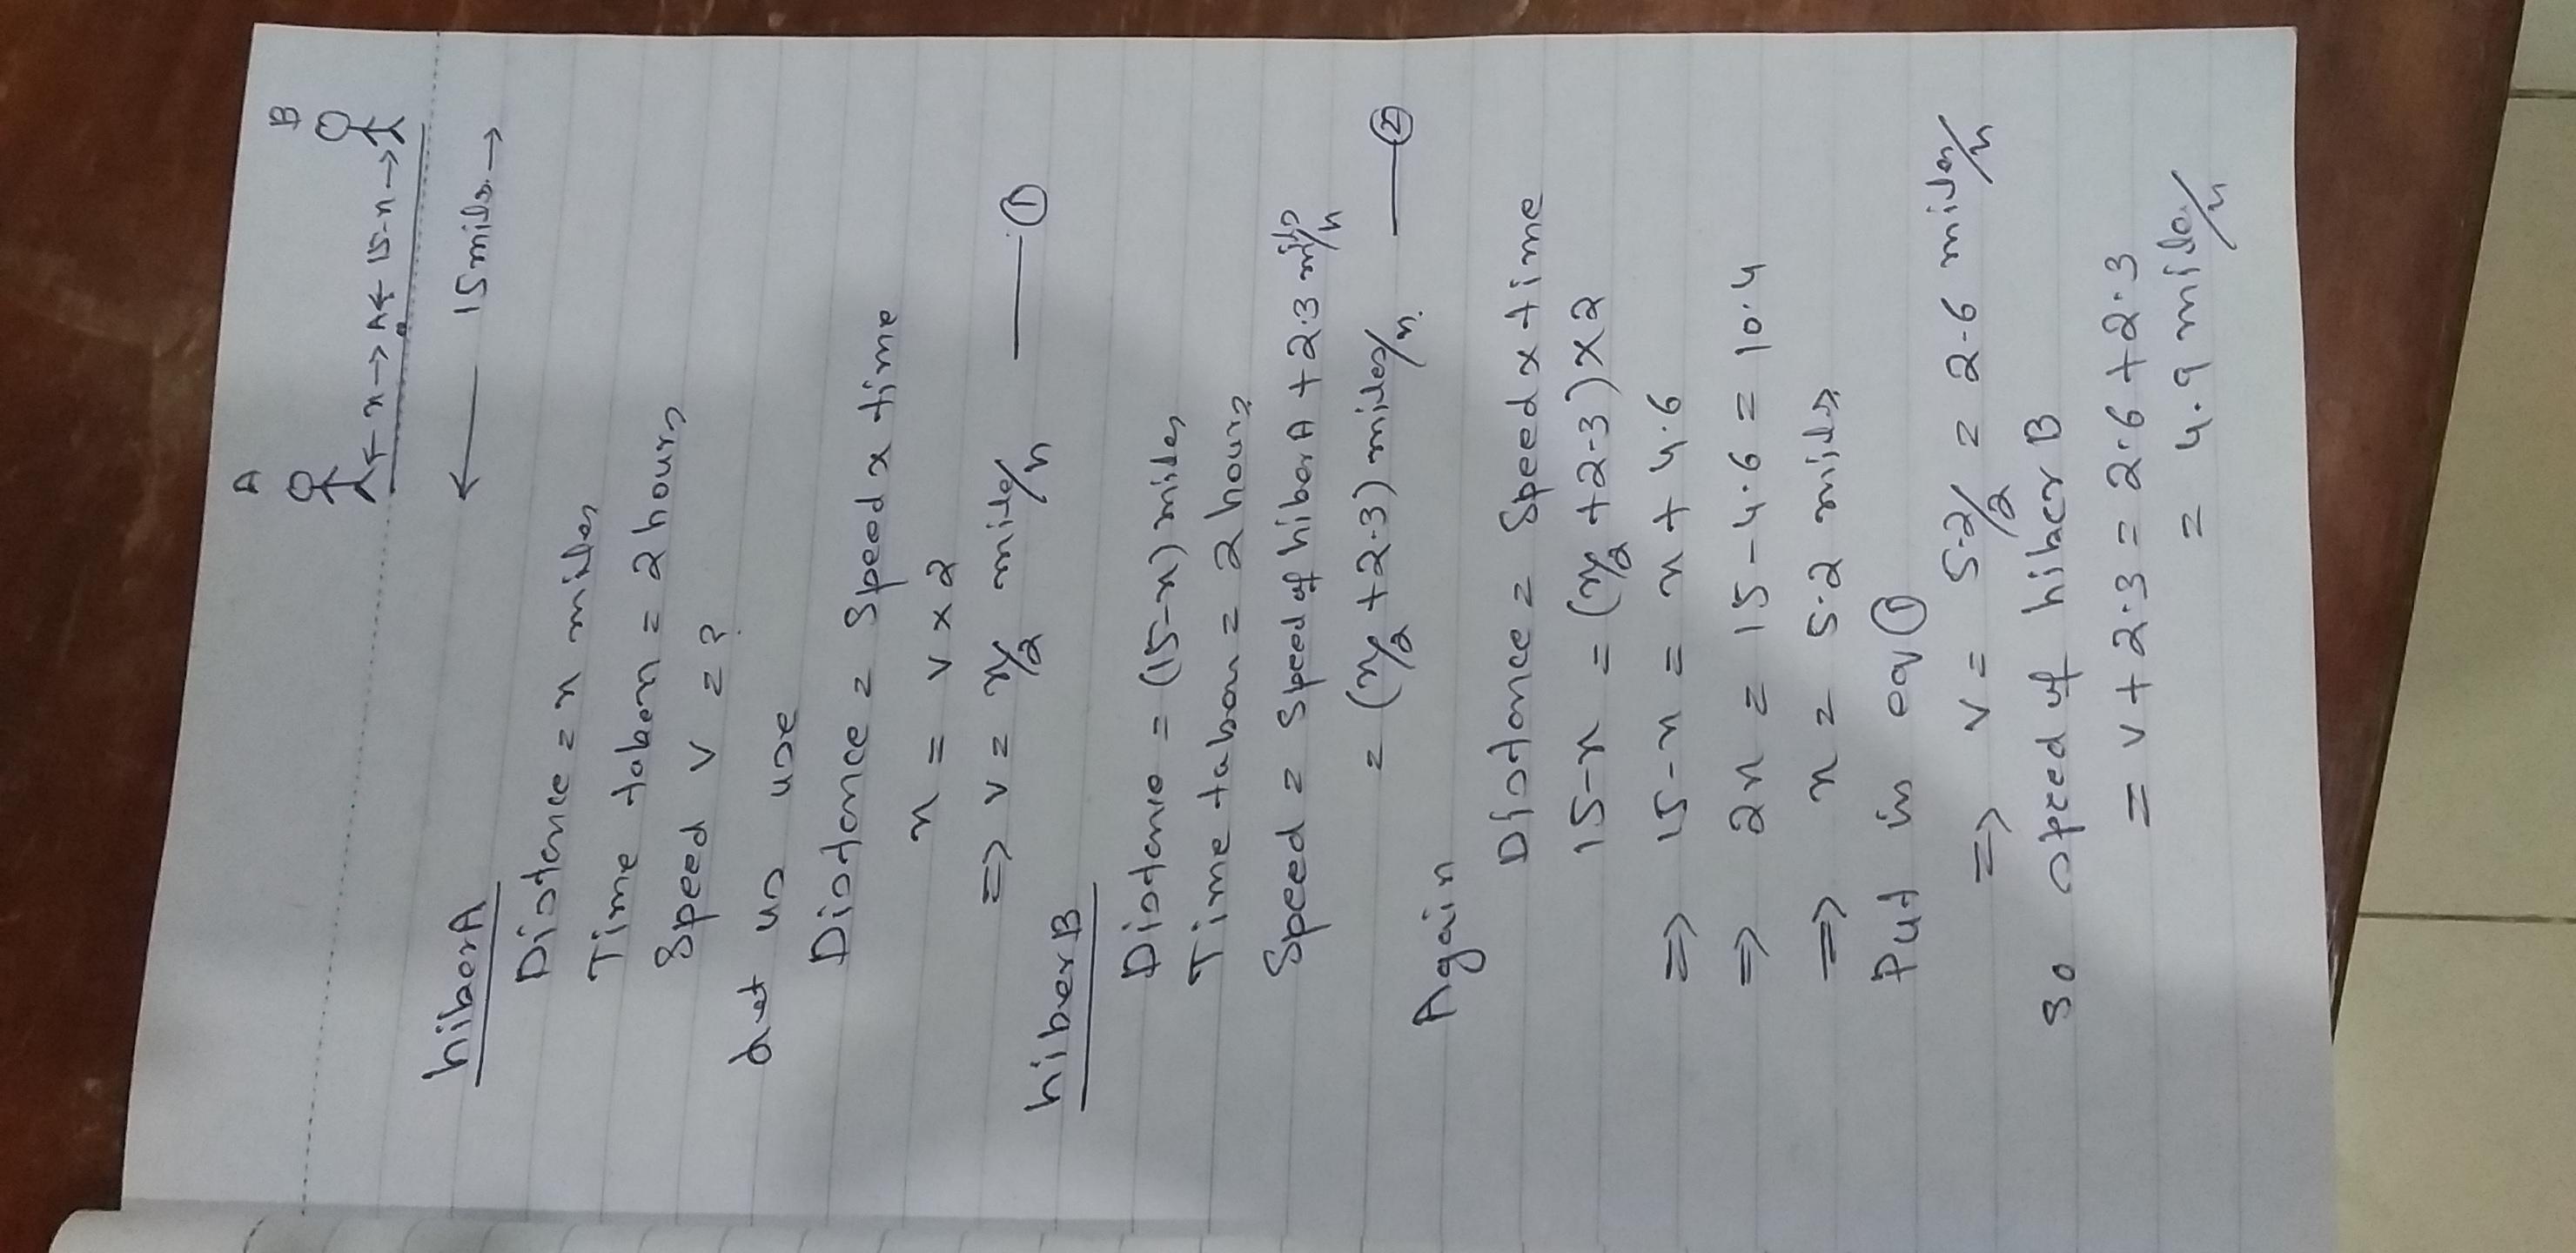 A B
←x→ ← 15-x→
← 15 miles →
hiker A
Distance = x miles
Time taken = 2 hours
Speed v = ?
Let us use
Distance = Speed x time
x = v x 2
⇒ v = x/2 miles/h —— ①
hiker B
Distance = (15-x) miles
Time taken = 2 hours
Speed = Speed of hiker A + 2.3 miles/h
= (x/2 + 2.3) miles/h. —— ②
Again
Distance = Speed x time
15-x = (x/2 + 2.3) x 2
⇒ 15-x = x + 4.6
⇒ 2x = 15-4.6 = 10.4
⇒ x = 5.2 miles
Put in eq ①
⇒ v = 5.2/2 = 2.6 miles/h
So speed of hiker B
= v + 2.3 = 2.6 + 2.3
= 4.9 miles/h